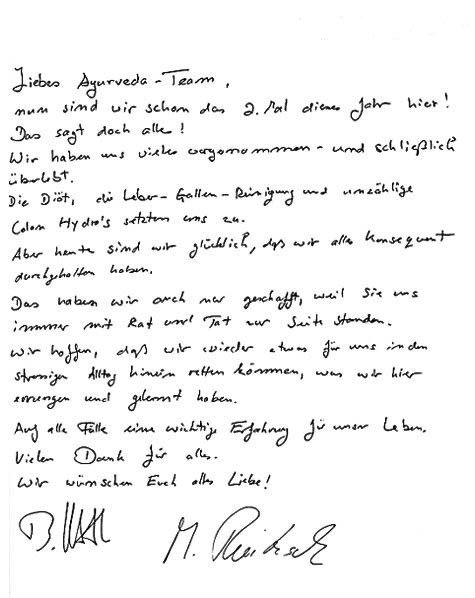 Liebes Ayurveda-Team,
nun sind wir schon das 2. Mal dieses Jahr hier!
Das sagt doch alles!
Wir haben uns vieles vorgenommen - und schließlich
überlebt.
Die Diät, die Leber-Gallen-Reinigung und unzählige
Colon Hydro's setzten uns zu.
Aber heute sind wir glücklich, daß wir alles konsequent
durchgehalten haben.
Das haben wir auch nur geschafft, weil Sie uns
immer mit Rat und Tat zur Seite standen.
Wir hoffen, daß wir wieder etwas für uns in den
stressigen Alltag hinein retten können, was wir hier
und gelernt haben.
Auf alle Fälle eine wichtige Erfahrung für unser Leben.
Vielen Dank für alles.
Wir wünschen Euch alles Liebe!
B.
M.